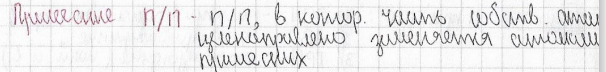 Примесные п/п - п/п, в котор. часть собств. атом
целенаправлено заменяется атомами
примесных